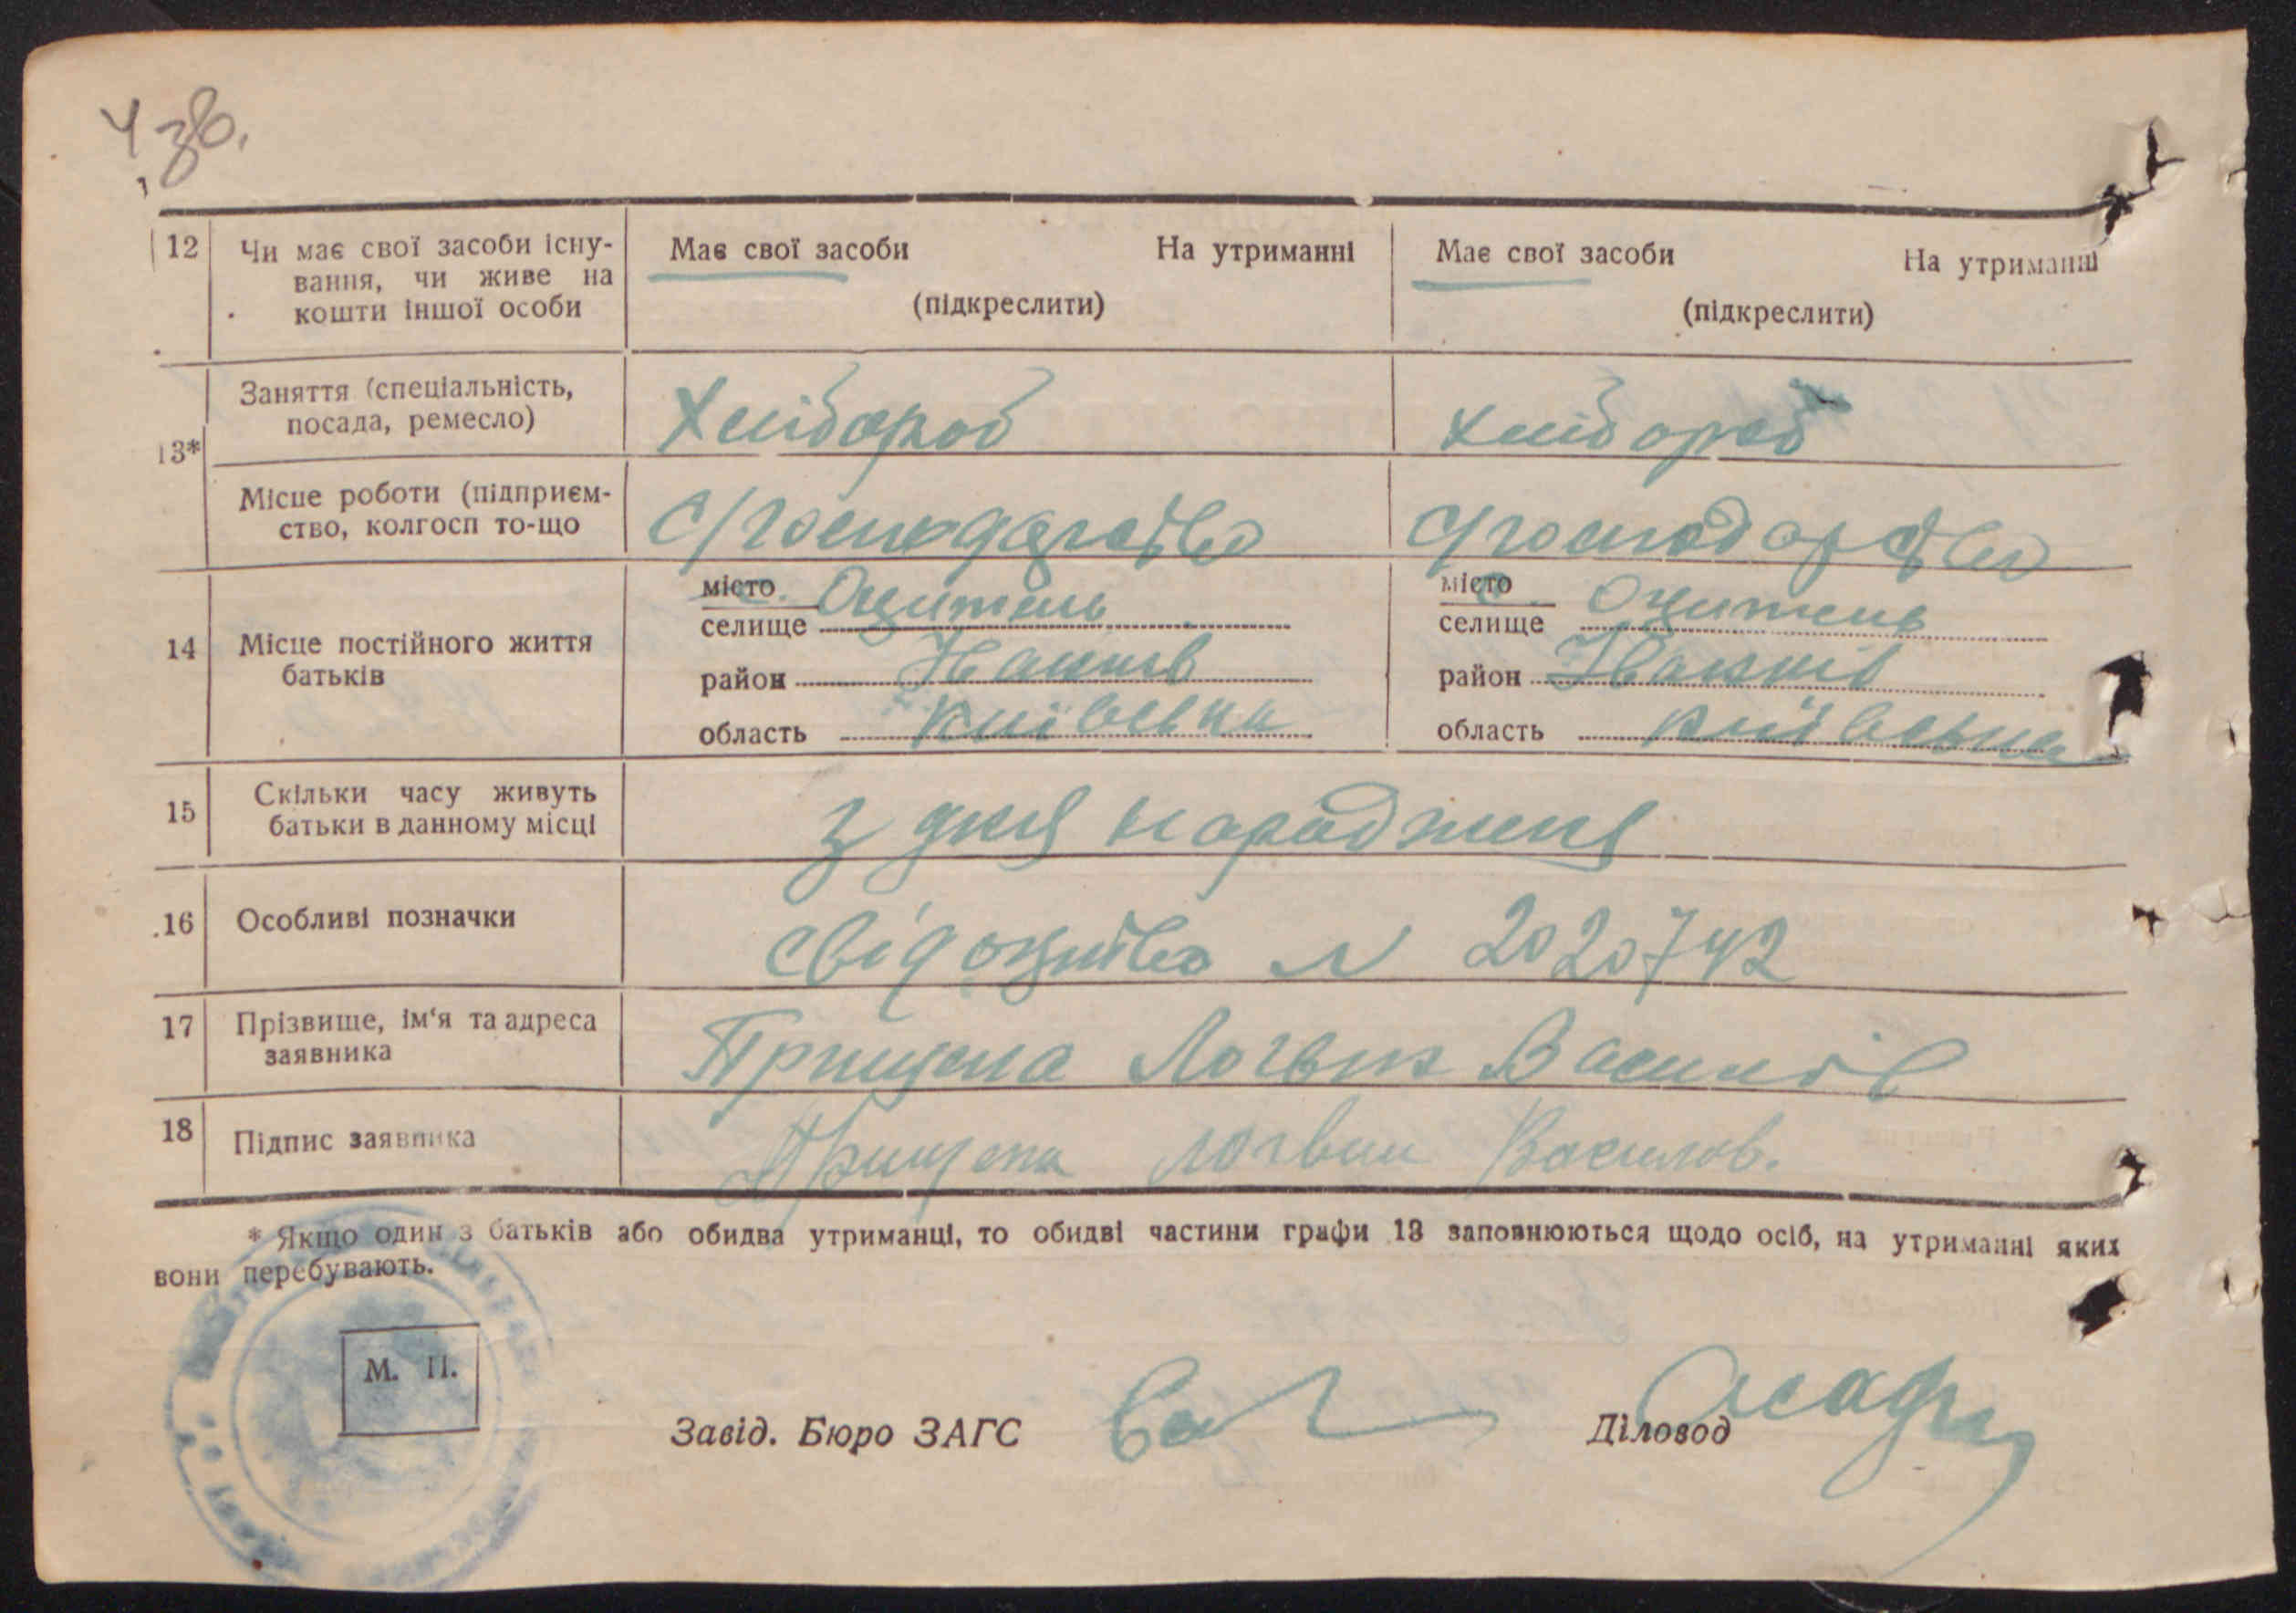 4 зв.
12 Чи має свої засоби існу- Має свої засоби На утриманні Має свої засоби На утриманні
вання, чи живе на
кошти іншої особи (підкреслити) (підкреслити)
Заняття (спеціальність,
посада, ремесло) Хлібороб хлібороб
13*
Місце роботи (підприєм-
ство, колгосп то-що с/господарство с/господарство
місто с. Оцитель місто с. Оцитель
селище селище
14 Місце постійного життя
батьків район Іванків район Іванків
область Київська область Київська
15 Скільки часу живуть
батьки в данному місці з дня народженя
16 Особливі позначки свідоцтво N 2020742
17 Прізвище, ім'я та адреса
заявника Прищепа Логвин Василів
18 Підпис заявника Прищепа Логвин Василов.
* Якщо один з батьків або обидва утриманці, то обидві частини графи 13 заповнюються щодо осіб, на утриманні яких
вони перебувають.
М. П.
Завід. Бюро ЗАГС Діловод